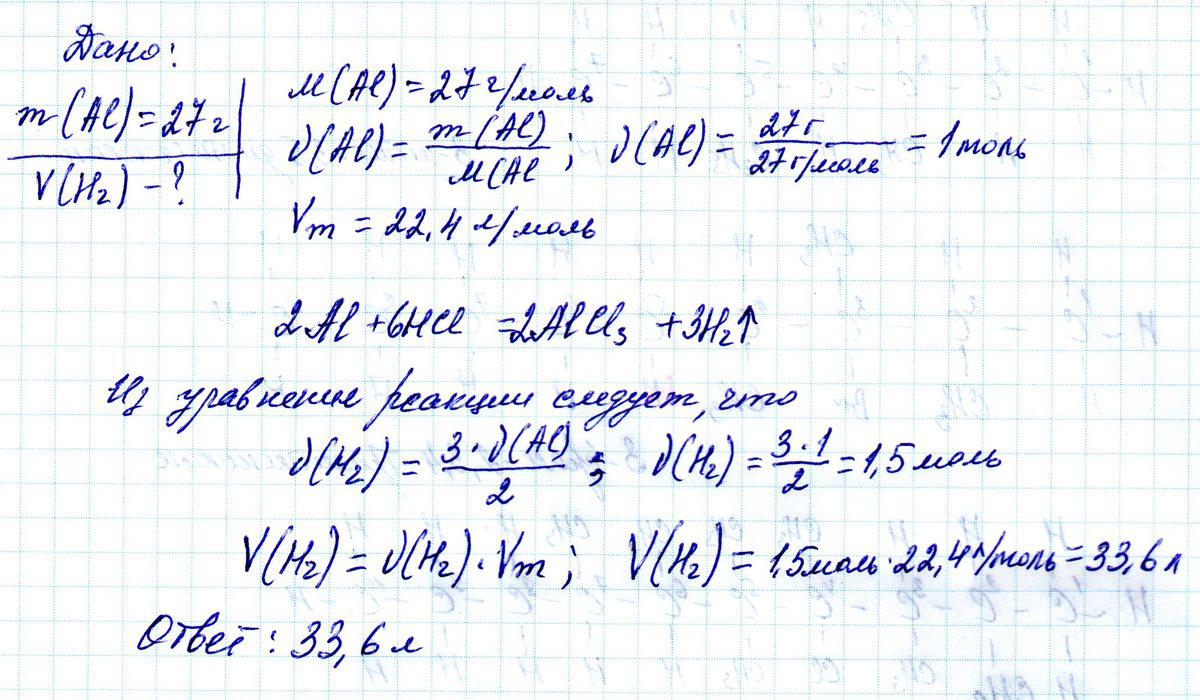 Дано:
m(Al) = 27 г
V(H₂) - ?
M(Al) = 27 г/моль
ν(Al) = m(Al)/M(Al ; ν(Al) = 27 г/27 г/моль = 1 моль
Vm = 22,4 л/моль
2Al + 6HCl = 2AlCl₃ + 3H₂↑
Из уравнения реакции следует, что
ν(H₂) = 3·ν(Al)/2 ; ν(H₂) = 3·1/2 = 1,5 моль
V(H₂) = ν(H₂)·Vm ; V(H₂) = 1,5 моль·22,4 л/моль = 33,6 л
Ответ: 33,6 л